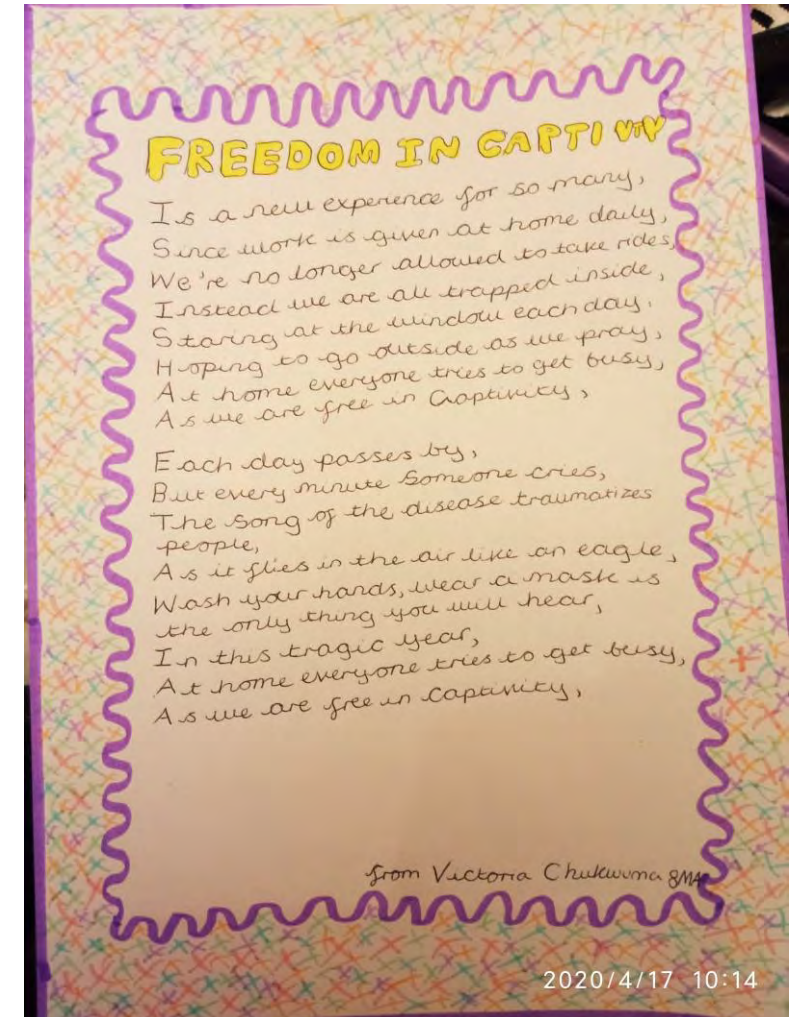 FREEDOM IN CAPTIVITY
Is a new experience for so many,
Since work is given at home daily,
We're no longer allowed to take rides,
Instead we are all trapped inside,
Staring at the window each day.
Hoping to go outside as we pray,
At home everyone tries to get busy,
As we are free in Captivity,
Each day passes by,
But every minute Someone cries,
The Song of the disease traumatizes
people,
As it flies in the air like an eagle,
Wash your hands, wear a mask is
the only thing you will hear,
In this tragic year,
At home everyone tries to get busy,
As we are free in Captivity,
from Victoria Chukwuma
2020/4/17 10:14